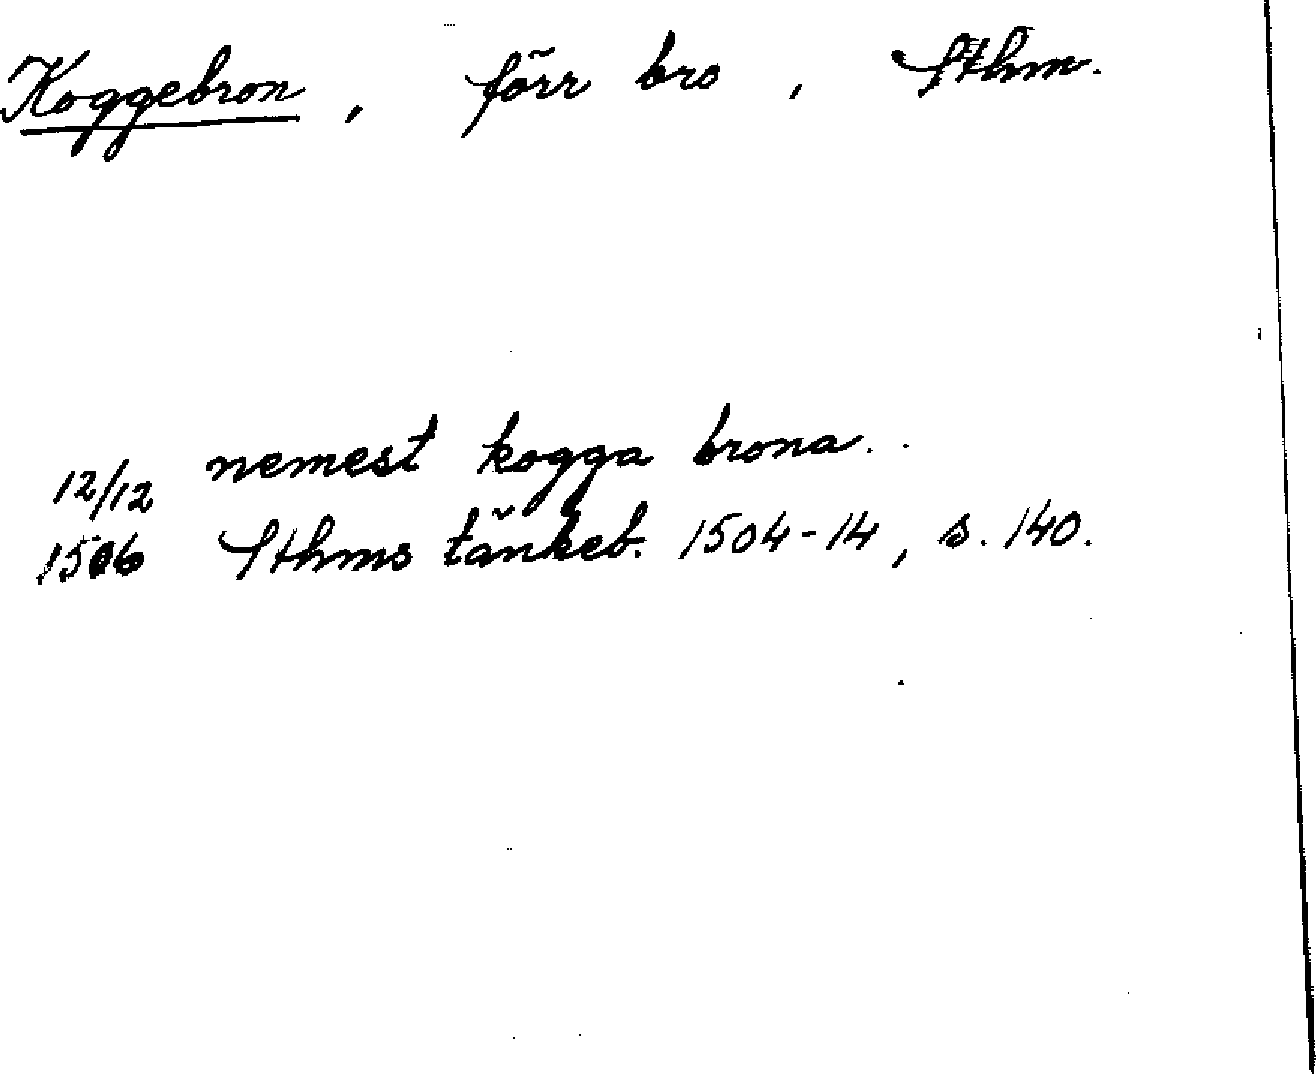 Koggebron, förr bro, Sthm.
12/12 nemest kogga brona.
1506 Sthms tänkeb. 1504-14, s. 140.